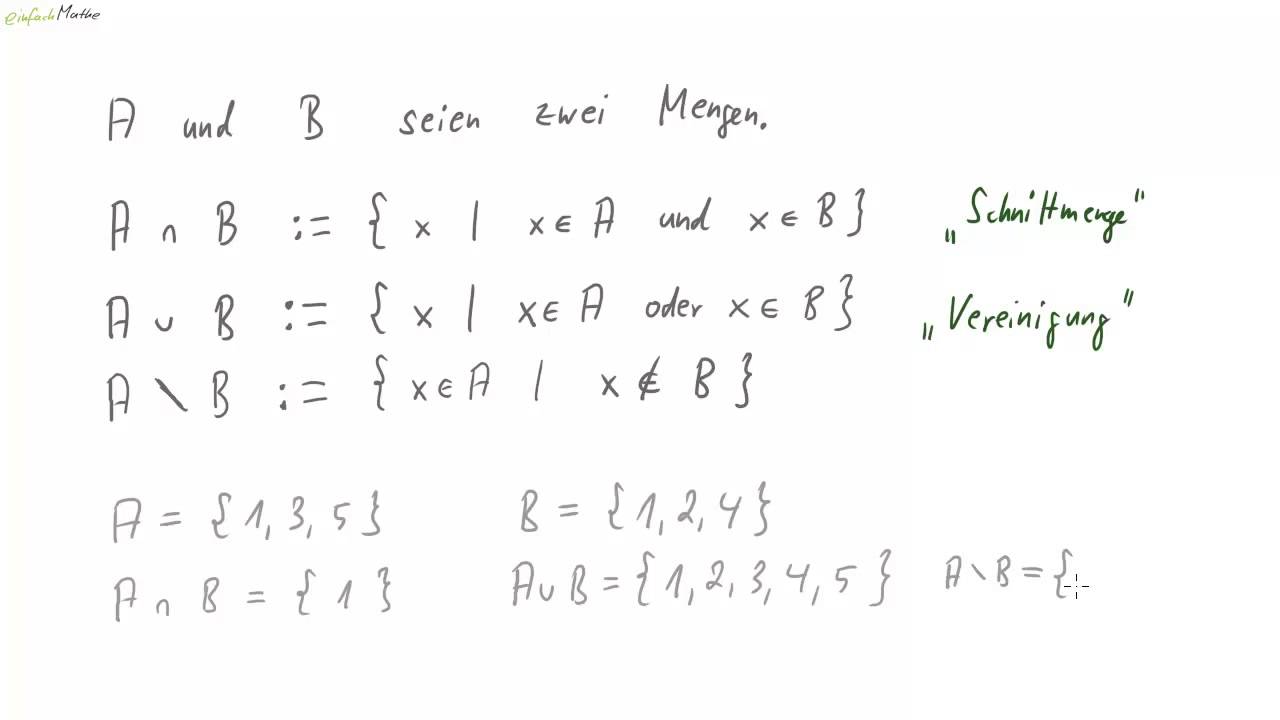 einfachMathe
A und B seien zwei Mengen.
A ∩ B := { x | x ∈ A und x ∈ B } „Schnittmenge"
A ∪ B := { x | x ∈ A oder x ∈ B } „Vereinigung"
A \ B := { x ∈ A | x ∉ B }
A = { 1, 3, 5 } B = { 1, 2, 4 }
A ∩ B = { 1 } A ∪ B = { 1, 2, 3, 4, 5 } A \ B = {